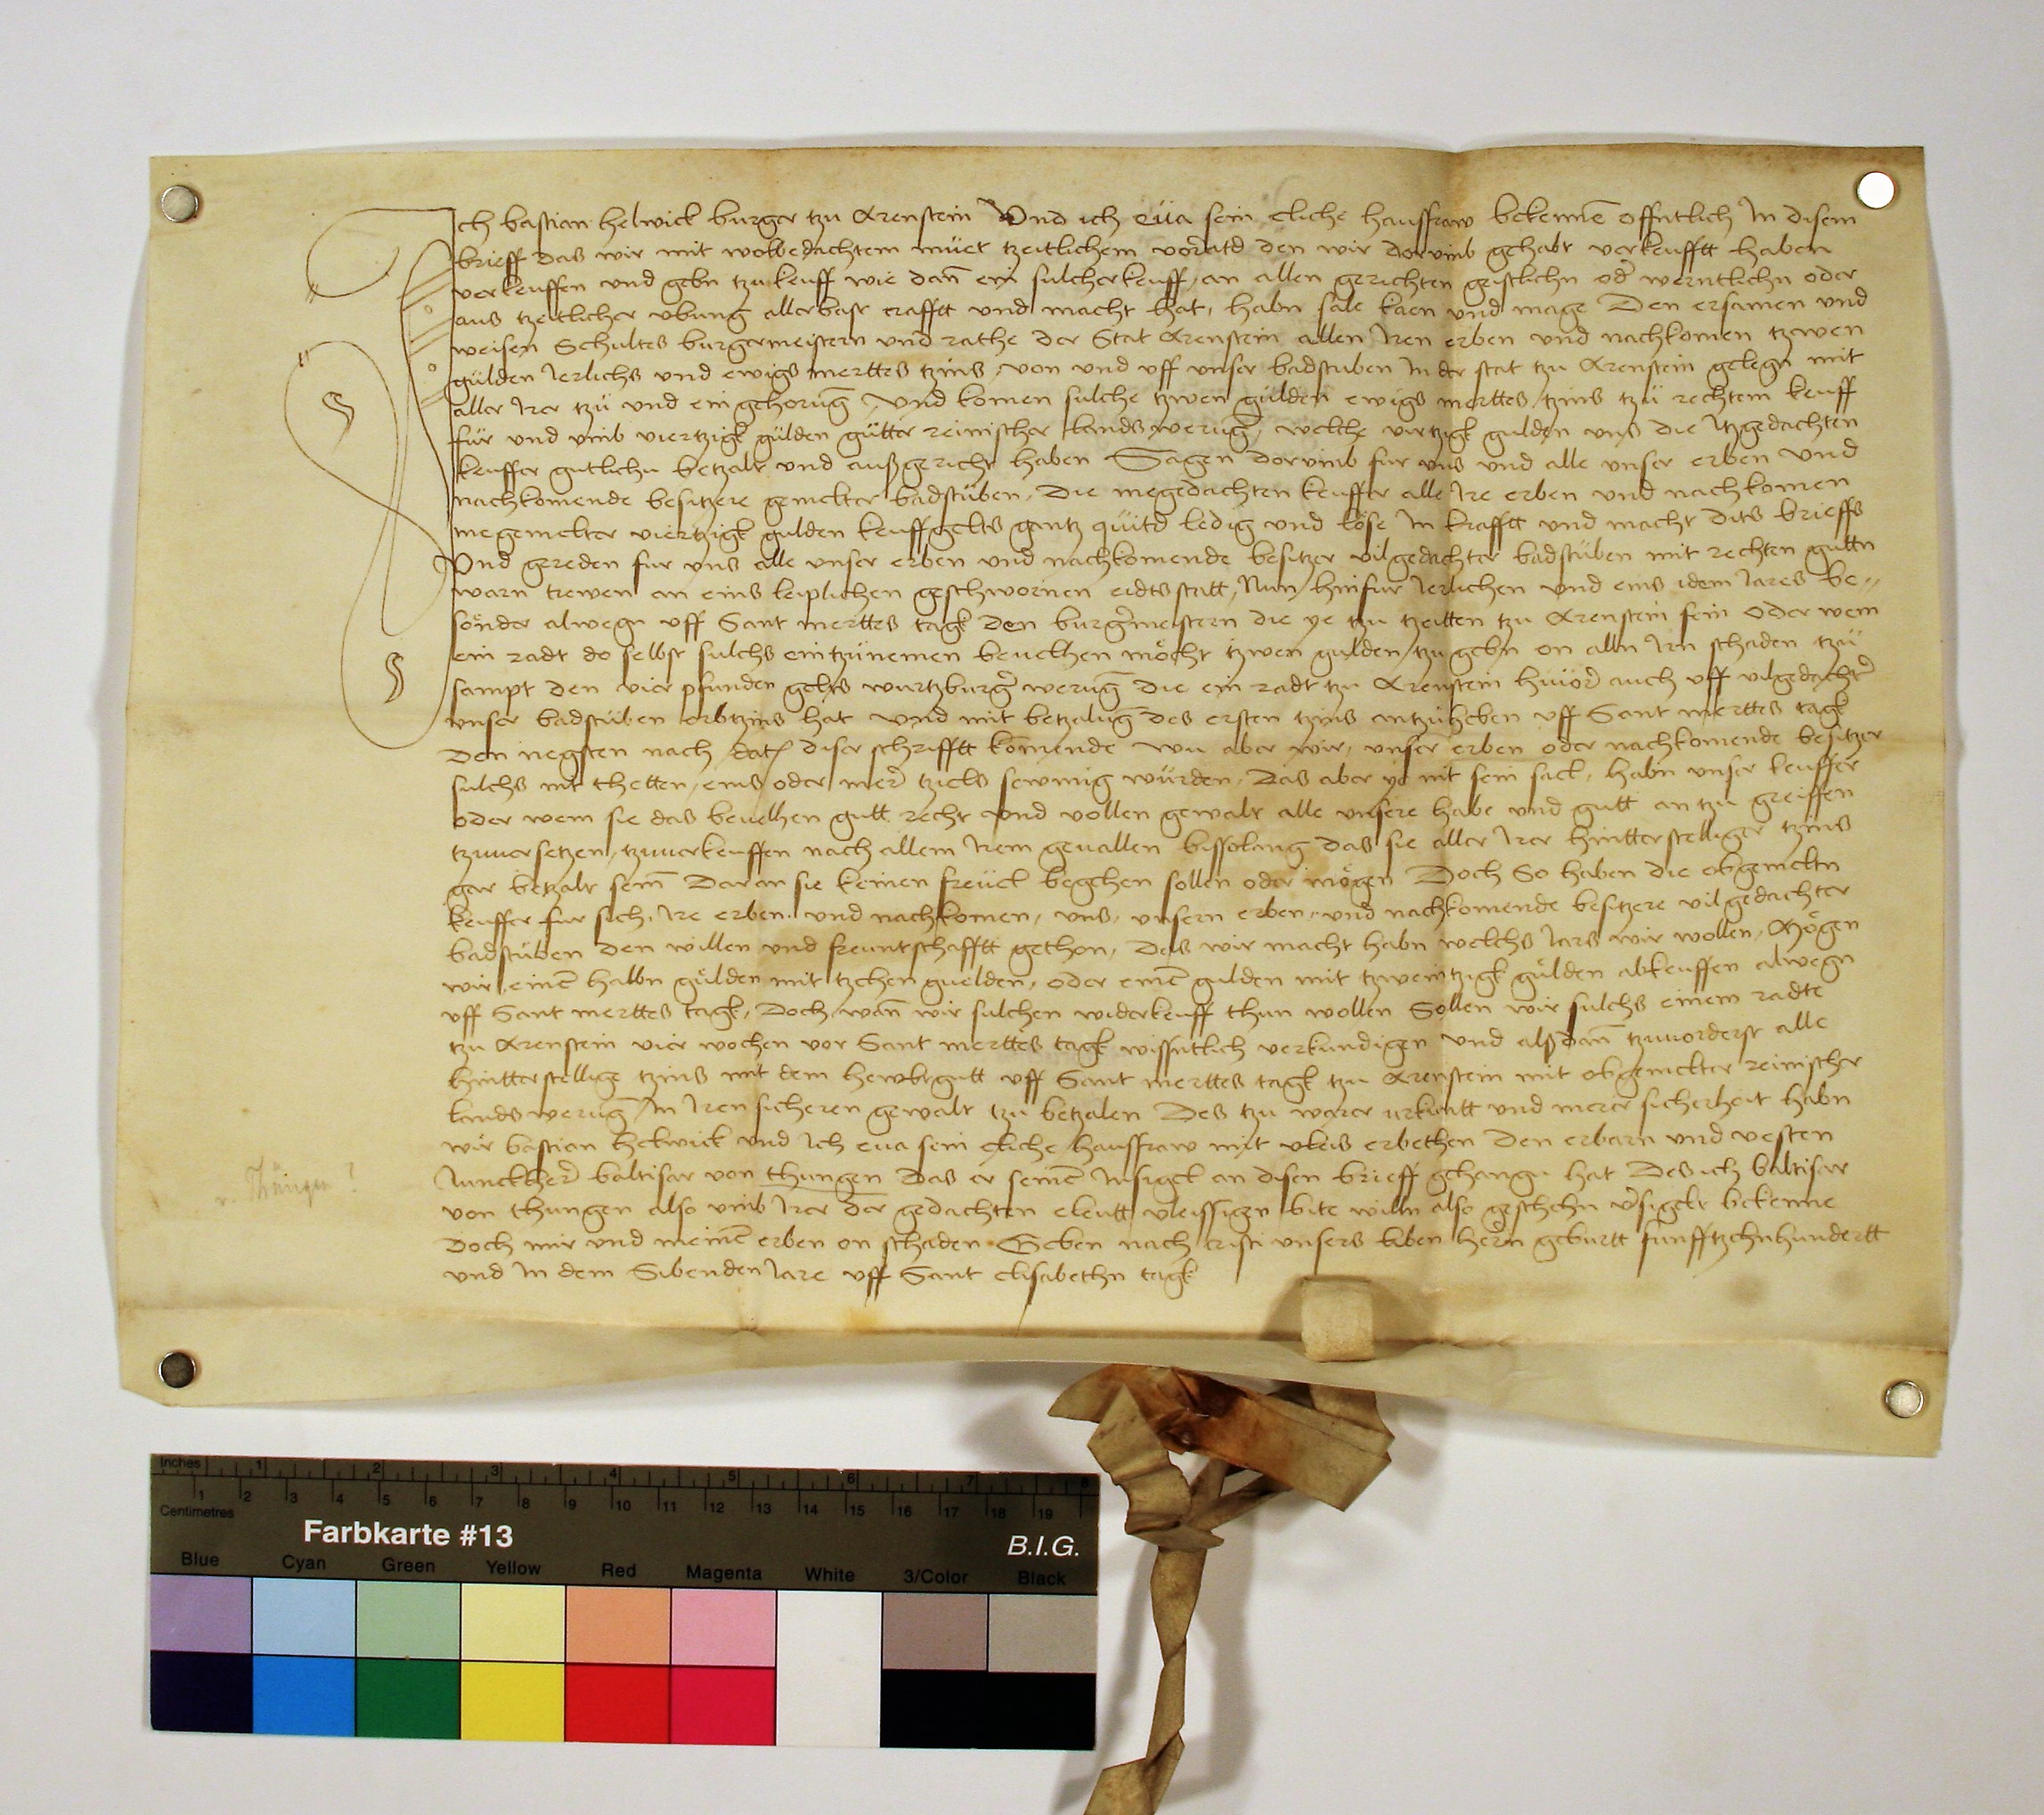 Ich bastian helwick burger tzu Arenstein Vnd ich eüa sein eliche haussfraw bekennē offntlich In disem
brieff das wir mit wolbedachtem müet tzeitlichem vorratd den wir dorvmb gehabt verkeufftt haben
verkeuffen vnd gebn tzu keuff wie dan̄ ein sulcherkeuff an allen gerichten geistlichn od' werntlichn oder
aus tzeitlicher vbung allerbast crafftt vnd macht hat, habn sale kaen vnd mage Den ersamen vnd
weisen Schultes burgermeistern vnd rathe der Stat Arenstein allen Iren erben vnd nachkomen tzwen
gülden Ierlichs vnd ewigs merttes tzins, von vnd vff vnser badstuben In der stat tzu Arenstein gelegn mit
aller Irer tzü vnd ein gehorūg Vnd komen sulche tzwen gülden ewigs merttes tzins tzü rechtem keuff
für vnd vmb viertzigk gülden gütter reinischer landswerūg, welche virtzigk gulden vns die Itzgedachten
keuffer gutlichn betzalt vnd außgericht haben Sagen dorvmb fur vns vnd alle vnser erben vnd
nachkomende besitzere gemelter badstüben, die megedachten keuffer alle Ire erben vnd nachkomen
megemelter viertzigk gulden keuffgelts gantz quitd ledig vnd löse In krafftt vnd macht dits brieffs
Vnd gereden fur vns alle vnser erben vnd nachkomende besitzer vilgedachter badstüben mit rechten guttn
warn trewen an eins leiplichen geschwornen eidtsstatt, Nun hinfur Ierlichen vnd eins idem Iares be-
sönder alwegn vff Sant merttes tagk den burg'meistern die ye tzu tzeitten tzu Arenstein sein oder wem
ein radt do selbst sulchs eintzünemen beuelhen möcht tzwen gulden tzugebn on alln Irn schaden tzü
sampt den vier pfunden gelts wurtzburg' werūg die ein radt tzu Arenstein hiuor' auch vff vilgedacht'
vnser badstüben erbtzins hat vnd mit betzalūg des ersten tzins antzüheben vff Sant merttes tagk
den negsten nach dat) diser schrifftt komende wu aber wir, vnser erben oder nachkomende besitzer
sulchs nit thetten, eins oder mer' tziels sewmig würden, Das aber ye nit sein sacl, habn vnser keuffer
oder wem sie das beuelhen gutt recht vnd vollen gewalt alle vnsere habe vnd gutt an tzu greiffen
tzuuersetzen, tzuuerkeuffen nach allem Irem geuallen bissolang das sie aller Irer hintterstelliger tzins
gar betzalt sein̄ Dar an sie keinen freüel begehen sollen oder mögen Doch So haben die obgemeltn
keuffer fur sich, Ire erben, vnd nachkomen, vns, vnsern erben, vnd nachkomende besitzere vilgedachter
badstüben den willen vnd freuntschafftt gethon, das wir macht habn welchs Iars wir wollen, Mögen
wir einē halbn gülden mit tzehen guelden, oder einē gulden mit tzweintzigk gülden abkeuffen alwegn
vff Sant merttes tagk, Doch wan̄ wir sulchen widerkeuff thun wollen Sollen wir sulchs einem radte
tzu Arenstein vier wochen vor Sant merttes tagk wissntlich verkundigen vnd alßdan̄ tzuuorderst alle
hintterstellige tzins mit dem hewbtgutt vff Sant merttes tagk tzu Arenstein mit obgemelter reinischer
landswerūg In Iren sicheren gewalt tzü betzalen Des tzu warer urkuntt vnd merer sicherheit habn
wir bastian helwick vnd Ich eua sein eliche haussfraw mit vleis erbethen den erbarn vnd vesten
Iunckher' baltisar von thungen das er seinē Insigel an disen brieff gehangn hat Des ich baltisar
v. Thüngen?
von thungen also vmb Irer der gedachten eleutt vleissigen bite willn also geschehn v'sigelt bekenne
doch mir vnd meinē erben on schaden Geben nach cristi vnsers liben hern geburtt funfftzehnhundertt
vnd In dem Sibenden Iare vff Sant elisabethn tagk
Inches 1 2 3 4 5 6 7 8
Centimetres 1 2 3 4 5 6 7 8 9 10 11 12 13 14 15 16 17 18 19
Farbkarte #13 B.I.G.
Blue Cyan Green Yellow Red Magenta White 3/Color Black